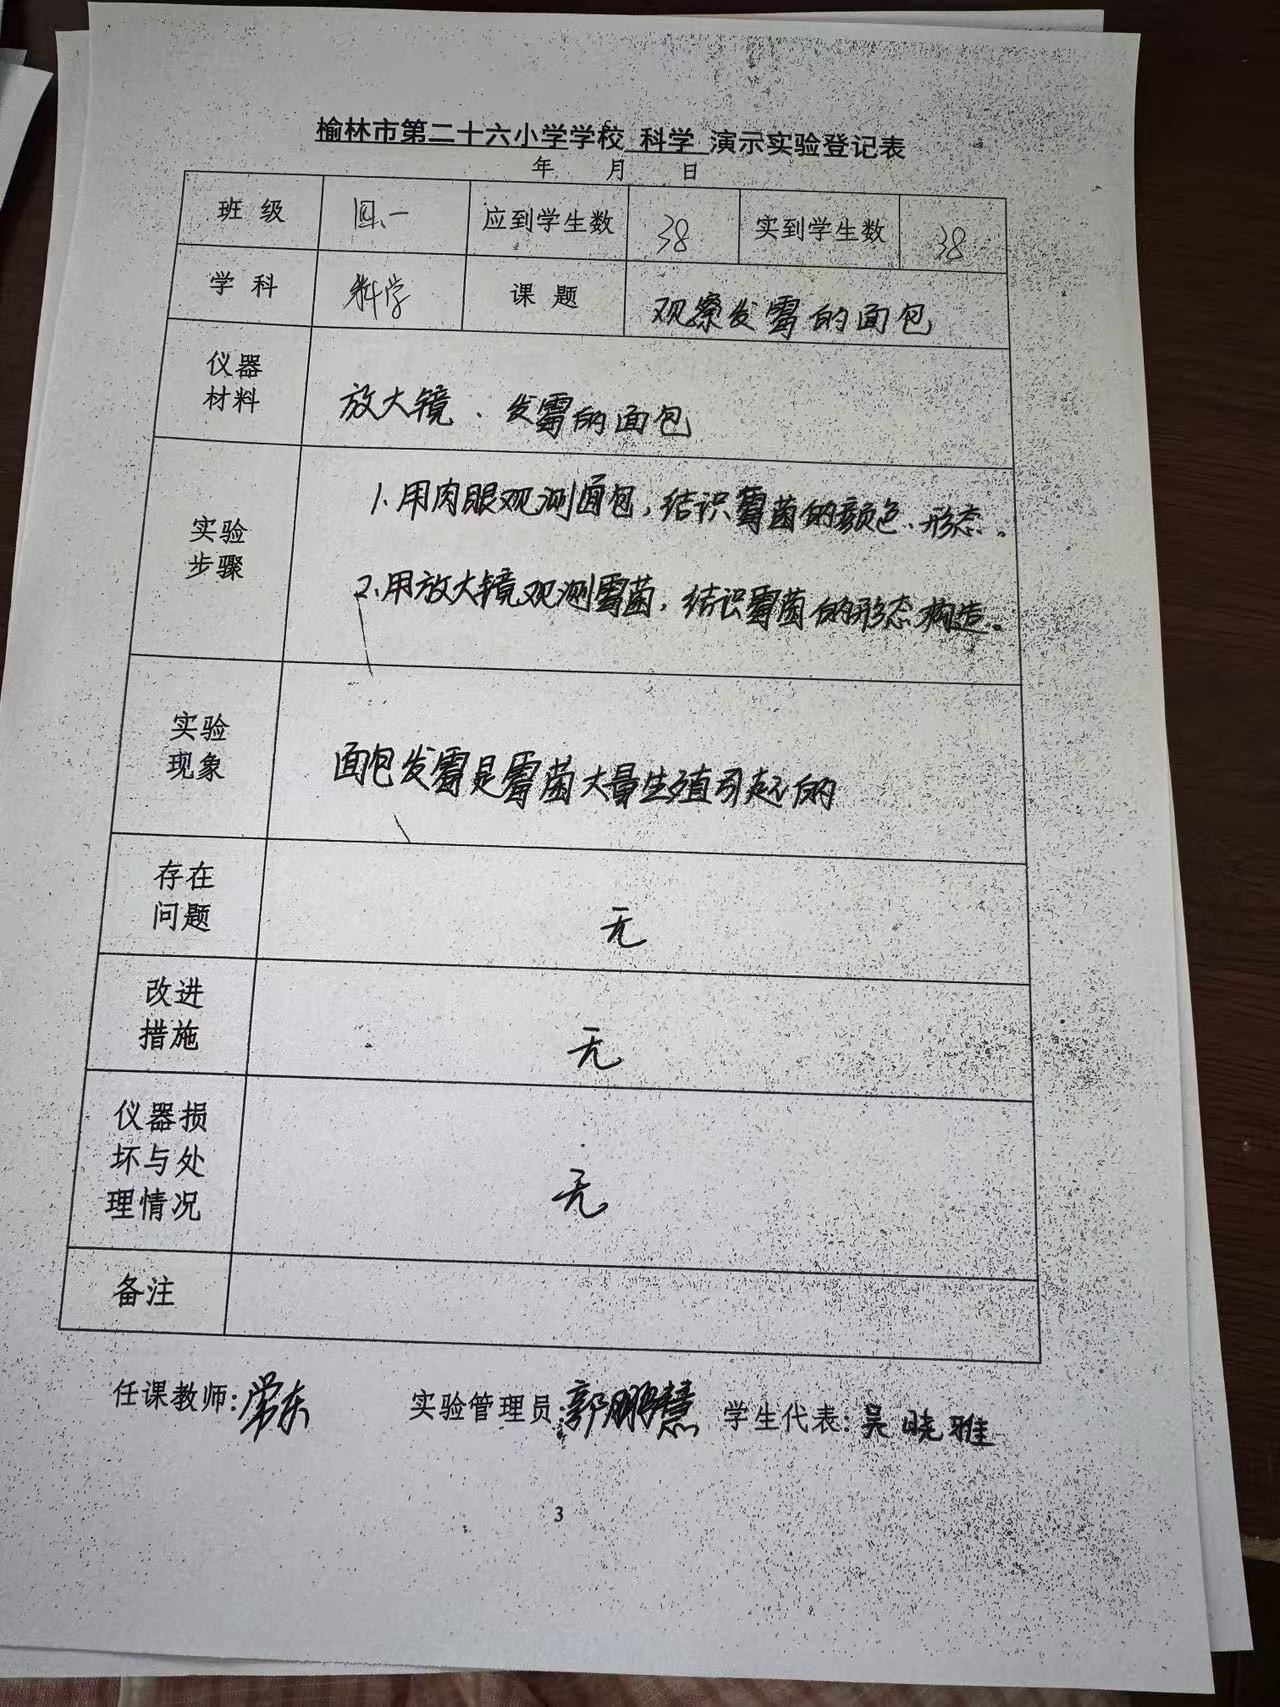 榆林市第二十六小学学校 科学 演示实验登记表
年 月 日
班 级 四、一 应到学生数 38 实到学生数 38
学 科 科学 课 题 观察发霉的面包
仪器
材料
放大镜、发霉的面包
实验
步骤
1、用肉眼观测面包，结识霉菌的颜色、形态。
2、用放大镜观测霉菌，结识霉菌的形态构造。
实验
现象
面包发霉是霉菌大量生殖引起的
存在
问题
无
改进
措施
无
仪器损
坏与处
理情况
无
备注
任课教师：常东 实验管理员：郭鹏慧 学生代表：吴晓雅
3